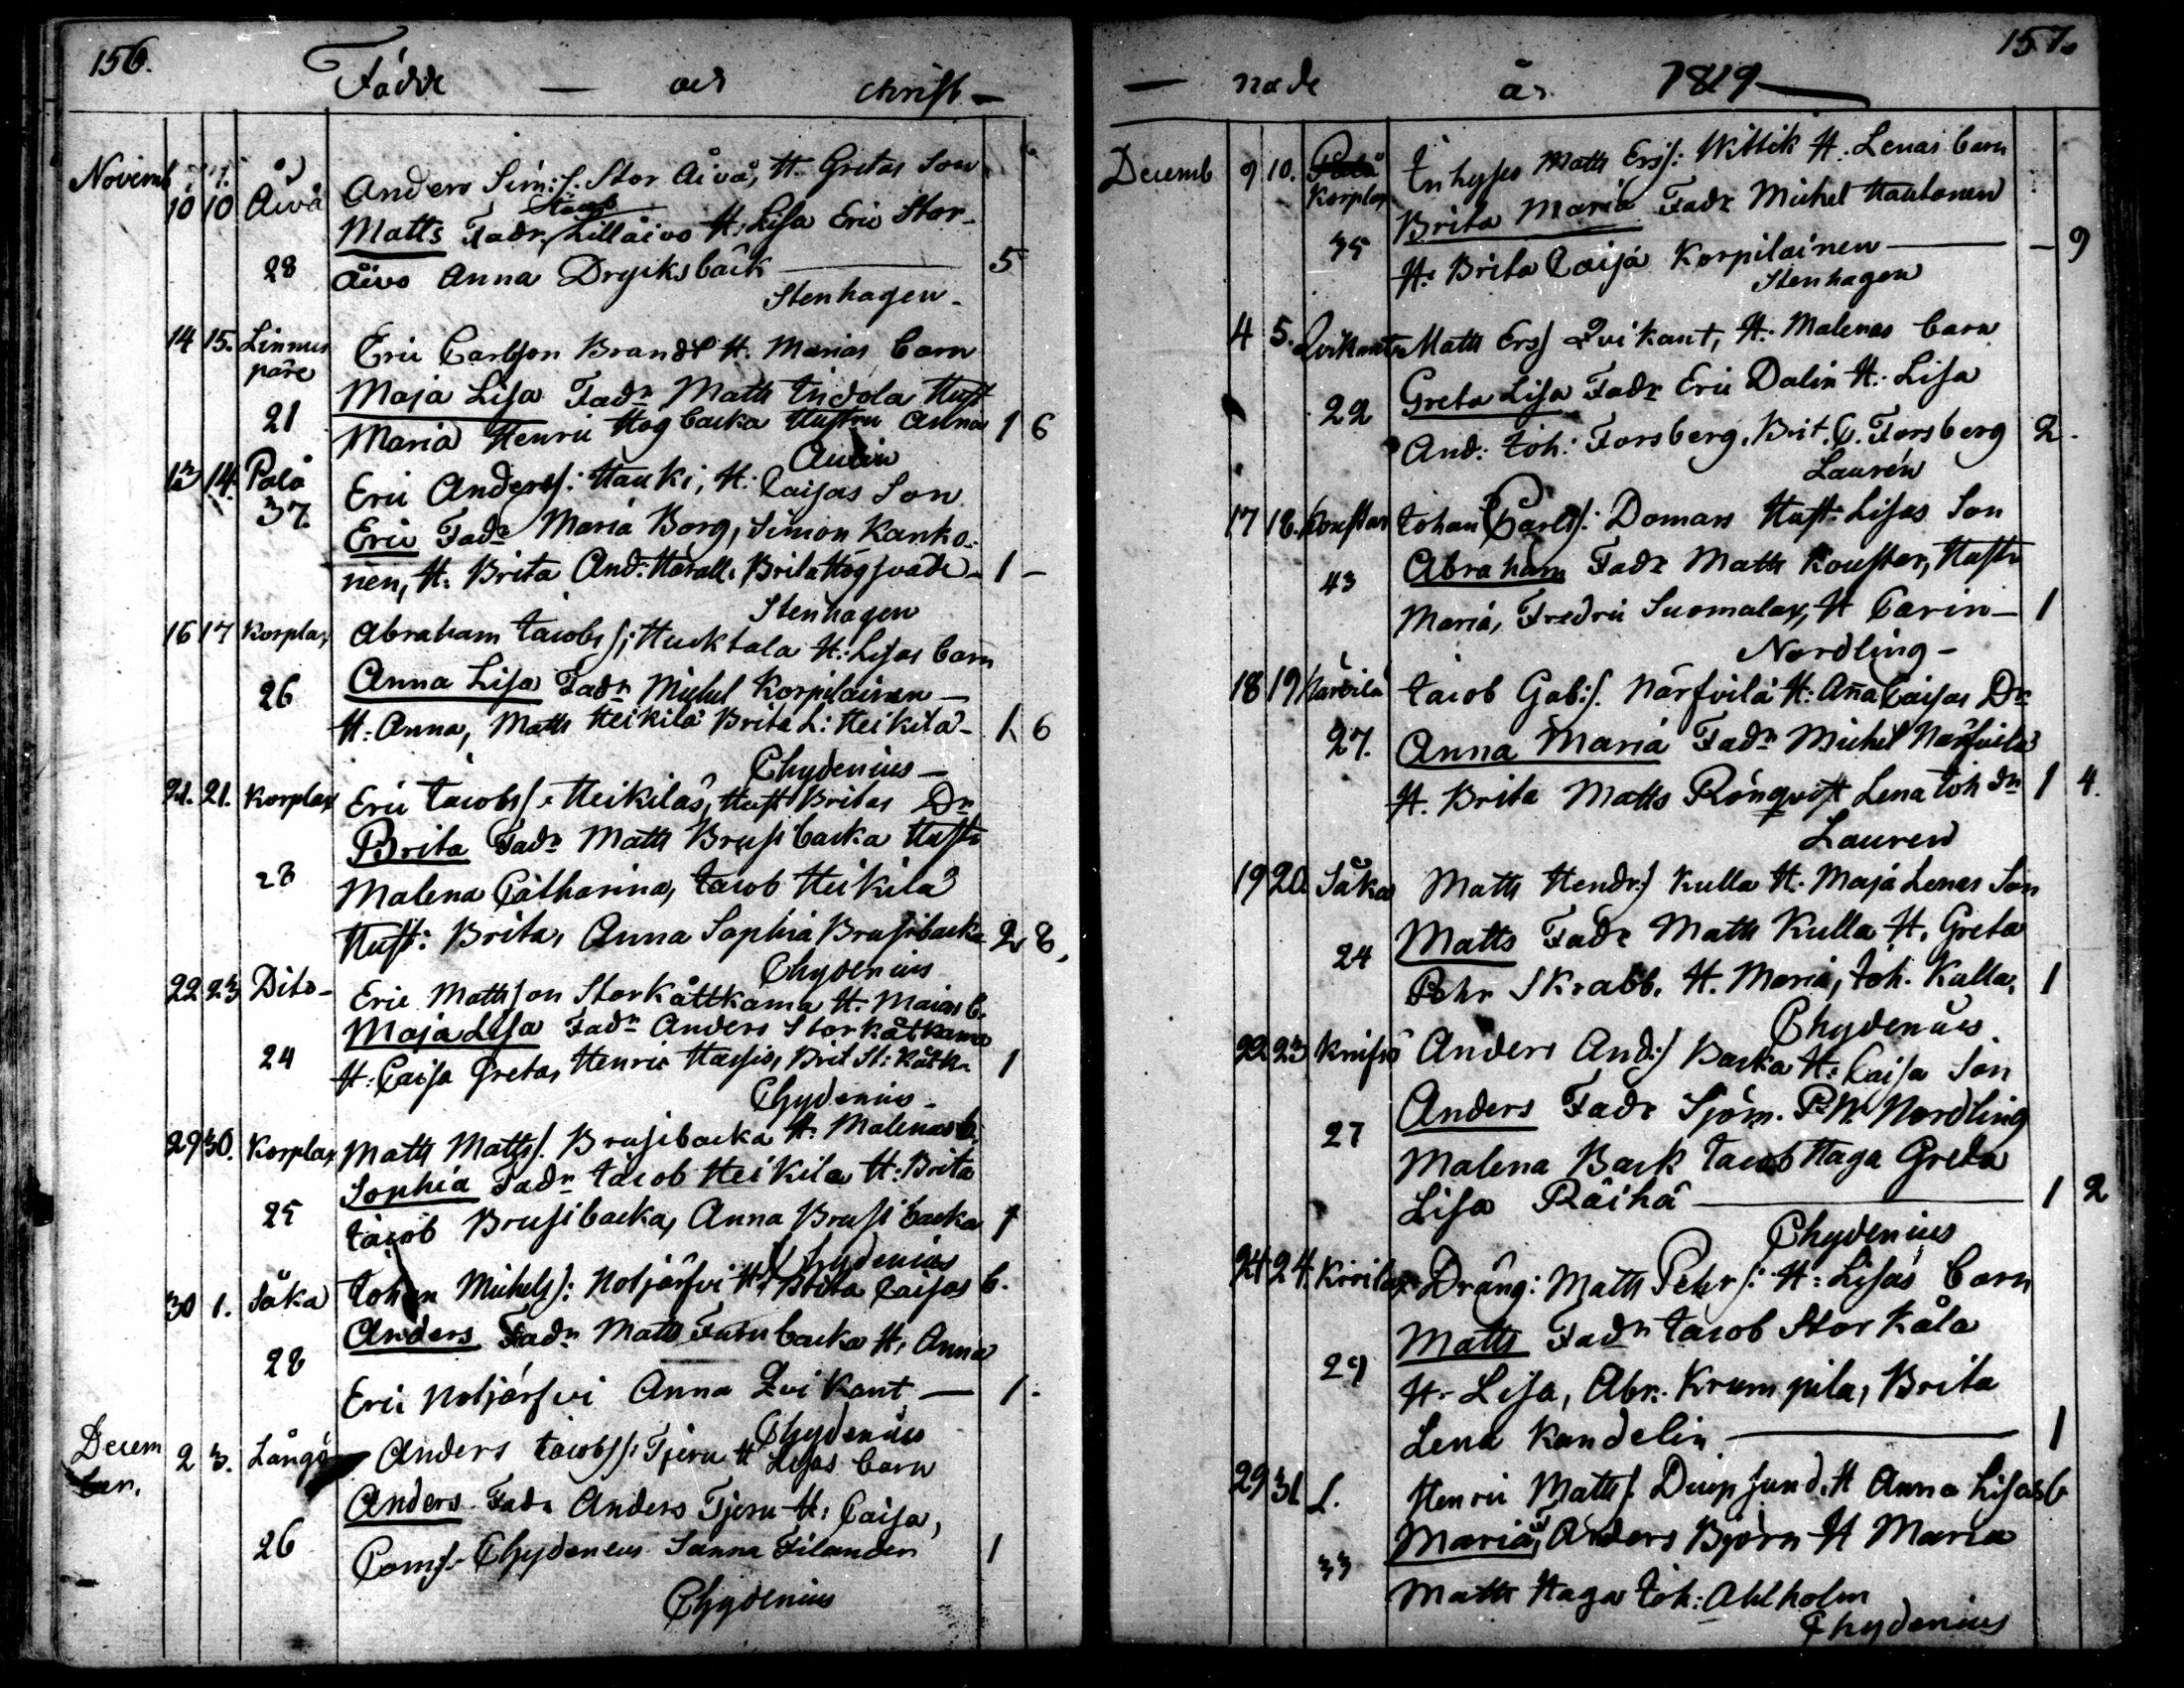 156.
Födde — och christ —
Novemb
10 10 Åivå Anders Sim:s. Stor Åivå, H. Gretas Son
Matts Fadr. Lillåivo H. Lisa Eric Stor-
28 åivo Anna Dryiksbäck — 5
Stenhagen -
14 15. Linnus Eric Carlsson Brandt H. Marias barn
päre Maja Lisa Fadr Matts Indola Hust
21 Maria Henric Högbacka Hustru Anna 1 6
13 14. Palå Eric Anderss: Hauki, H. Caisas Son
37. Eric Fadr Maria Borg, Simon Kanko-
nen, H. Brita And: Harald. Brita Hög 1 -
Stenhagen
16 17 Korplax Abraham Jacobs: Hucktala H. Lisas barn
Anna Lisa Fadr Michel Korpilainen —
26 H. Anna, Matts Heikilä Brita L: Heikilä - 1. 6
Chydenius —
21. 21. Korplax Eric Jacobs: Heikiläs, Hust Britas Dr
Brita Fadr Matts Brusibacka Hustr
28 Malena Catharina, Jacob Heikilä
Hust: Brita, Anna Sophia Brusibacka 2 8,
Chydenius
22 23 Dito - Eric Mattsson Storkåttkama H. Maias b.
Maja Lisa Fadr Anders Storkåtkama
24 H. Caisa Greta, Henric Hassis, Brit St: Kåtk. 1
Chydenius -
29 30. Korplax Matts Matts. Brusibacka H. Malenas b.
Sophia Fadr Jacob Heikila H. Brita
25 Jacob Brusibacka, Anna Brusibacka 1
Chydenius
30 1. Såka Johan Michels: Notjärfvi H. Brita Caisas b.
Anders Fadr Matts Furubacka H. Anna
28 Eric Notjärfvi Anna Qvikant — 1.
Chydenius
Decem
ber. 2 3. Långö Anders Jacobs: Tjeru H Lisas barn
Anders Fadr Anders Tjeru H: Caisa,
26 Coms. Chydenius Sanna Filander 1
Chydenius
157.
— nade år 1819 —
Decemb 9 10. Palå Inhyses Matts Ers: Wittik H. Lenas barn
Korplax Brita Maria Fadr Michel Hautonen
35 H. Brita Caisa Korpilainen — — 9
Stenhagen
4 5. Qvikant Matts Ers Qvikant, H. Malenas barn
22 Greta Lisa Fadr Eric Dalin H. Lisa
And: Joh: Forsberg. Brit. C. Forsberg 2.
Laurén
17 18. Koustar Johan Carls: Domars Hust: Lisas Son
43 Abraham Fadr Matts Kouster, Hustr
Maria, Fredric Suomalax, H Carin — 1
Nordling -
18 19 Närvilä Jacob Gab:s. Närfvilä H. Aña Caisas Dr
27. Anna Maria Fadr Michel Närfvilä
H. Brita Matts Rönqvist Lena Joh dr 1 4.
Lauren
19 20. Såka Matts Hendr:s Kulla H. Maja Lenas Son
24 Matts Fadr Matts Kulla H. Greta
Pehr Skrabb. H. Maria, Joh. Kulla, 1
Chydenius
22 23 Knifsö Anders And:s Backa H. Caisa Son
27 Anders Fadr Sjöm. P. N. Nordling
Malena Back Jacob Haga Greta
Lisa Räihä — 1 2
Chydenius
24 24. Kirilax Dräng: Matts Pehr: H. Lisas barn
29 Matts Fadr Jacob Storkåla
H. Lisa, Abr. Krumpila, Brita
Lena Kandelin — 1
29 31. L. Henric Matts Diupsund. H Anna Lisas b
33 Maria, Anders Björn H Maria
Matts Haga Joh: Ahlholm
Chydenius